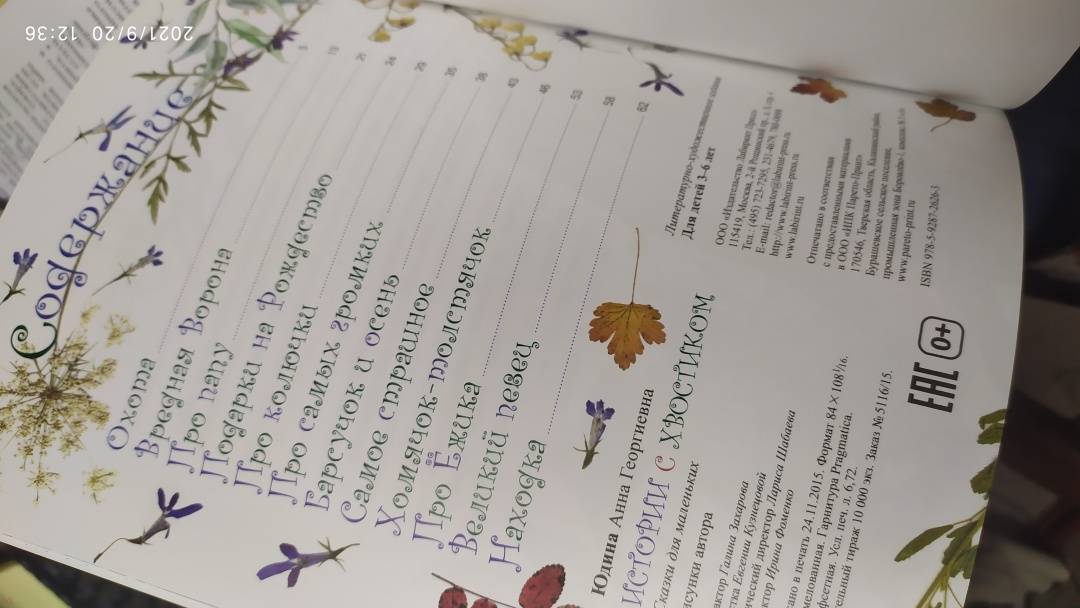 Содержание
Охота 5
Вредная Ворона
Про папу
Подарки на Рождество
Про колючки
Про самых громких
Барсучок и осень
Самое страшное
Хомячок-толстячок 43
Про Ёжика 46
Великий певец 53
Находка 62
Юдина Анна Георгиевна
ИСТОРИИ С ХВОСТИКОМ
Сказки для маленьких
исунки автора
актор Галина Захарова
стка Евгении Кузнецовой
ический директор Лариса Шибаева
ектор Ирина Фоменко
ано в печать 24.11.2015. Формат 84 × 108 1/16.
мелованная. Гарнитура Pragmatica.
фсетная. Усл. печ. л. 6,72.
тельный тираж 10 000 экз. Заказ № 5116/15.
Литературно-художественное
Для детей 3–6 лет
ООО «Издательство Лабиринт Пресс»
115419, Москва, 2-й Рощинский пр.,
Тел.: (495) 723-7295, 231-4679,
E-mail: redactor@labirint-press.ru
http://www.labirint-press.ru
www.labirint.ru
Отпечатано в соответствии
с предоставленными материалами
в ООО «ИПК Парето-Принт»
170546, Тверская область, Калининский район,
Бурашевское сельское поселение,
промышленная зона Боровлево-1,
www.pareto-print.ru
ISBN 978-5-9287-2626-3
ЕАС 0+
2021/9/20 12:36